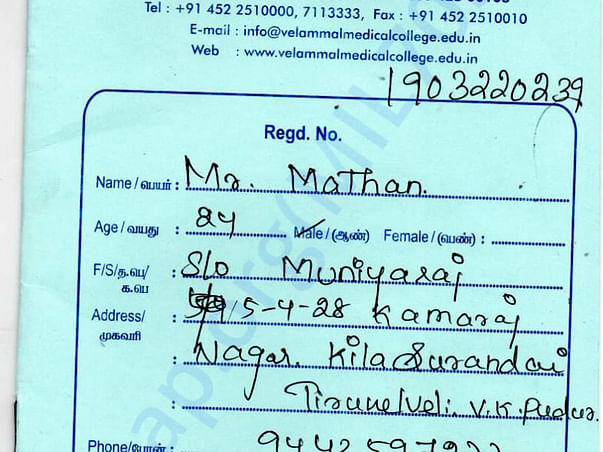 Tel : +91 452 2510000, 7113333, Fax : +91 452 2510010
E-mail : info@velammalmedicalcollege.edu.in
Web : www.velammalmedicalcollege.edu.in
1903220239
Regd. No.
Name / பெயர் : Mr. Mathan.
Age / வயது : 24 Male / (ஆண்) Female / (பெண்) :
F/S/த.பெ/ க.பெ : S/o Muniyaraj
Address/ முகவரி : 5-4-28 Kamaraj
: Nagar. Kila Surandai
: Tirunelveli. V.K. Pudur.
Phone/போன் :